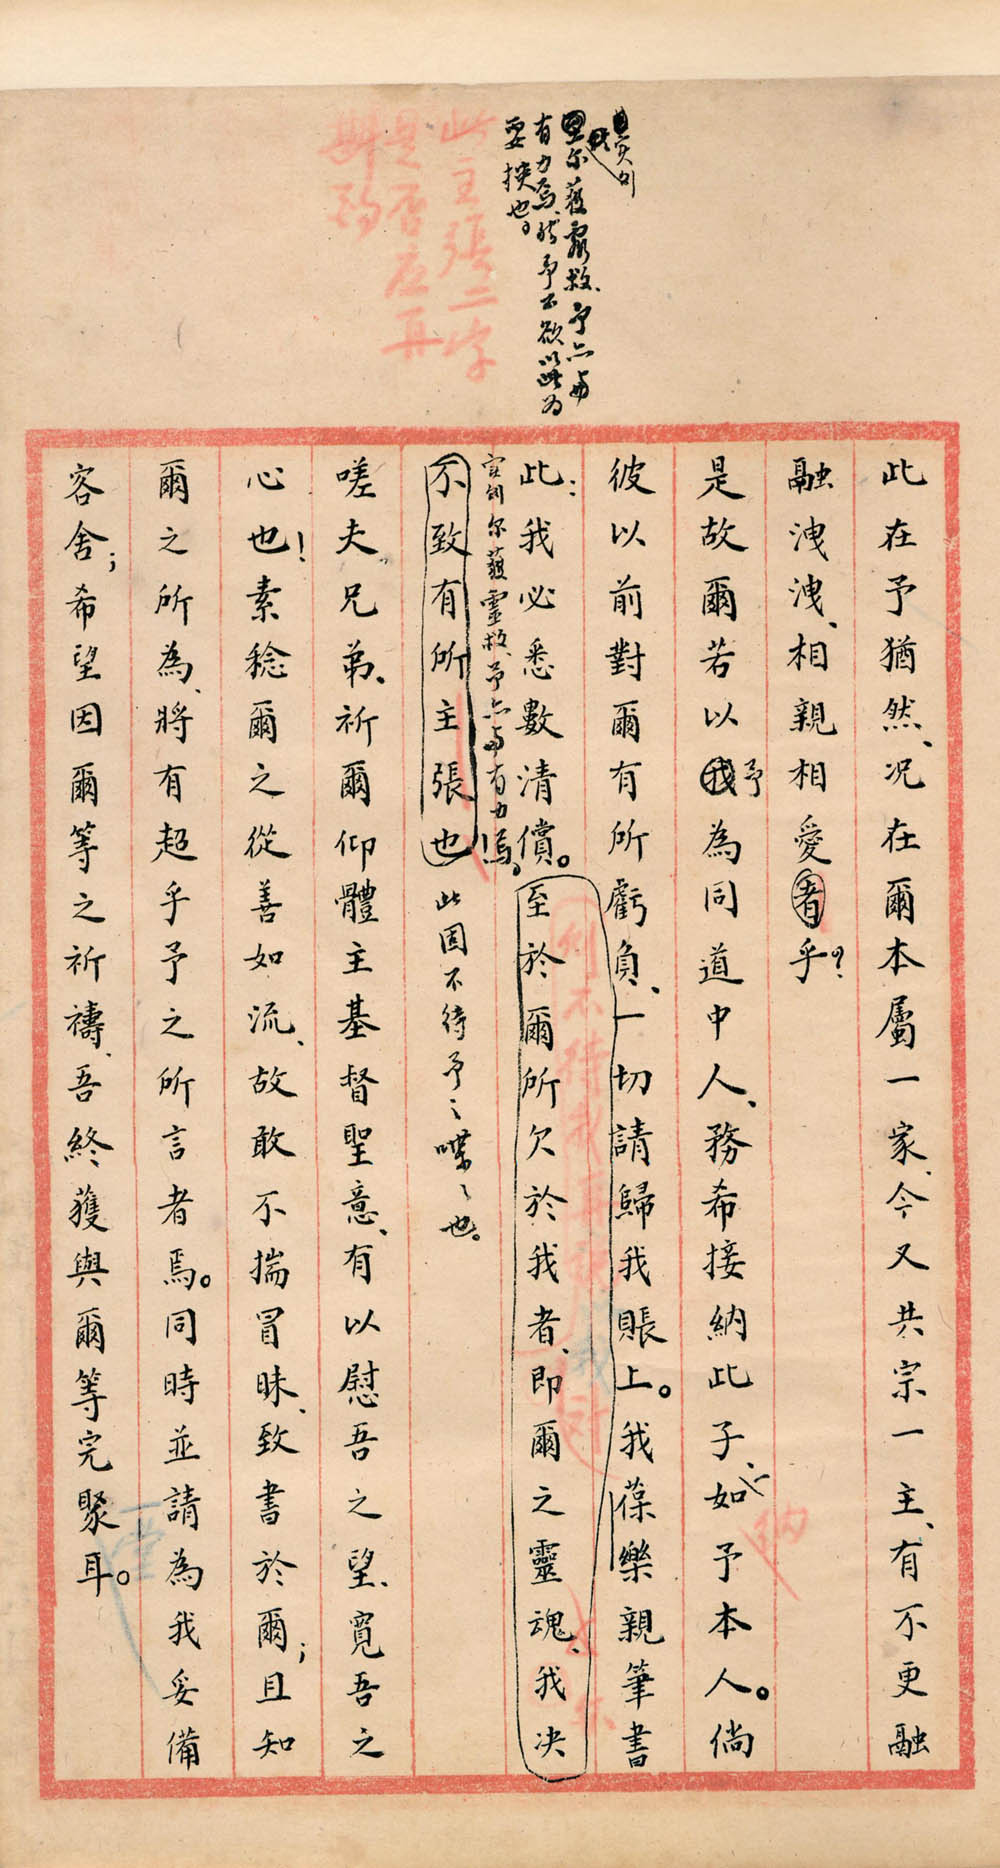 此主張二字
是否應再
斟酌
爾獲靈救、予亦與
有力焉、然予不欲以此為
要挾也。
此在予猶然、況在爾本屬一家、今又共宗一主、有不更融
融洩洩、相親相愛者乎?
是故爾若以我為同道中人、務希接納此子、如予本人。倘
予
納
彼以前對爾有所虧負、一切請歸我賬上。我葆樂親筆書
此:我必悉數清償。至於爾所欠於我者、即爾之靈魂、我決
爾獲靈救、予亦與有力焉。
不致有所主張也此固不待予之喋喋也。
嗟夫、兄弟、祈爾仰體主基督聖意、有以慰吾之望、寬吾之
心也!素稔爾之從善如流、故敢不揣冒昧、致書於爾;且知
爾之所為、將有超乎予之所言者焉。同時並請為我妥備
客舍;希望因爾等之祈禱、吾終獲與爾等完聚耳。